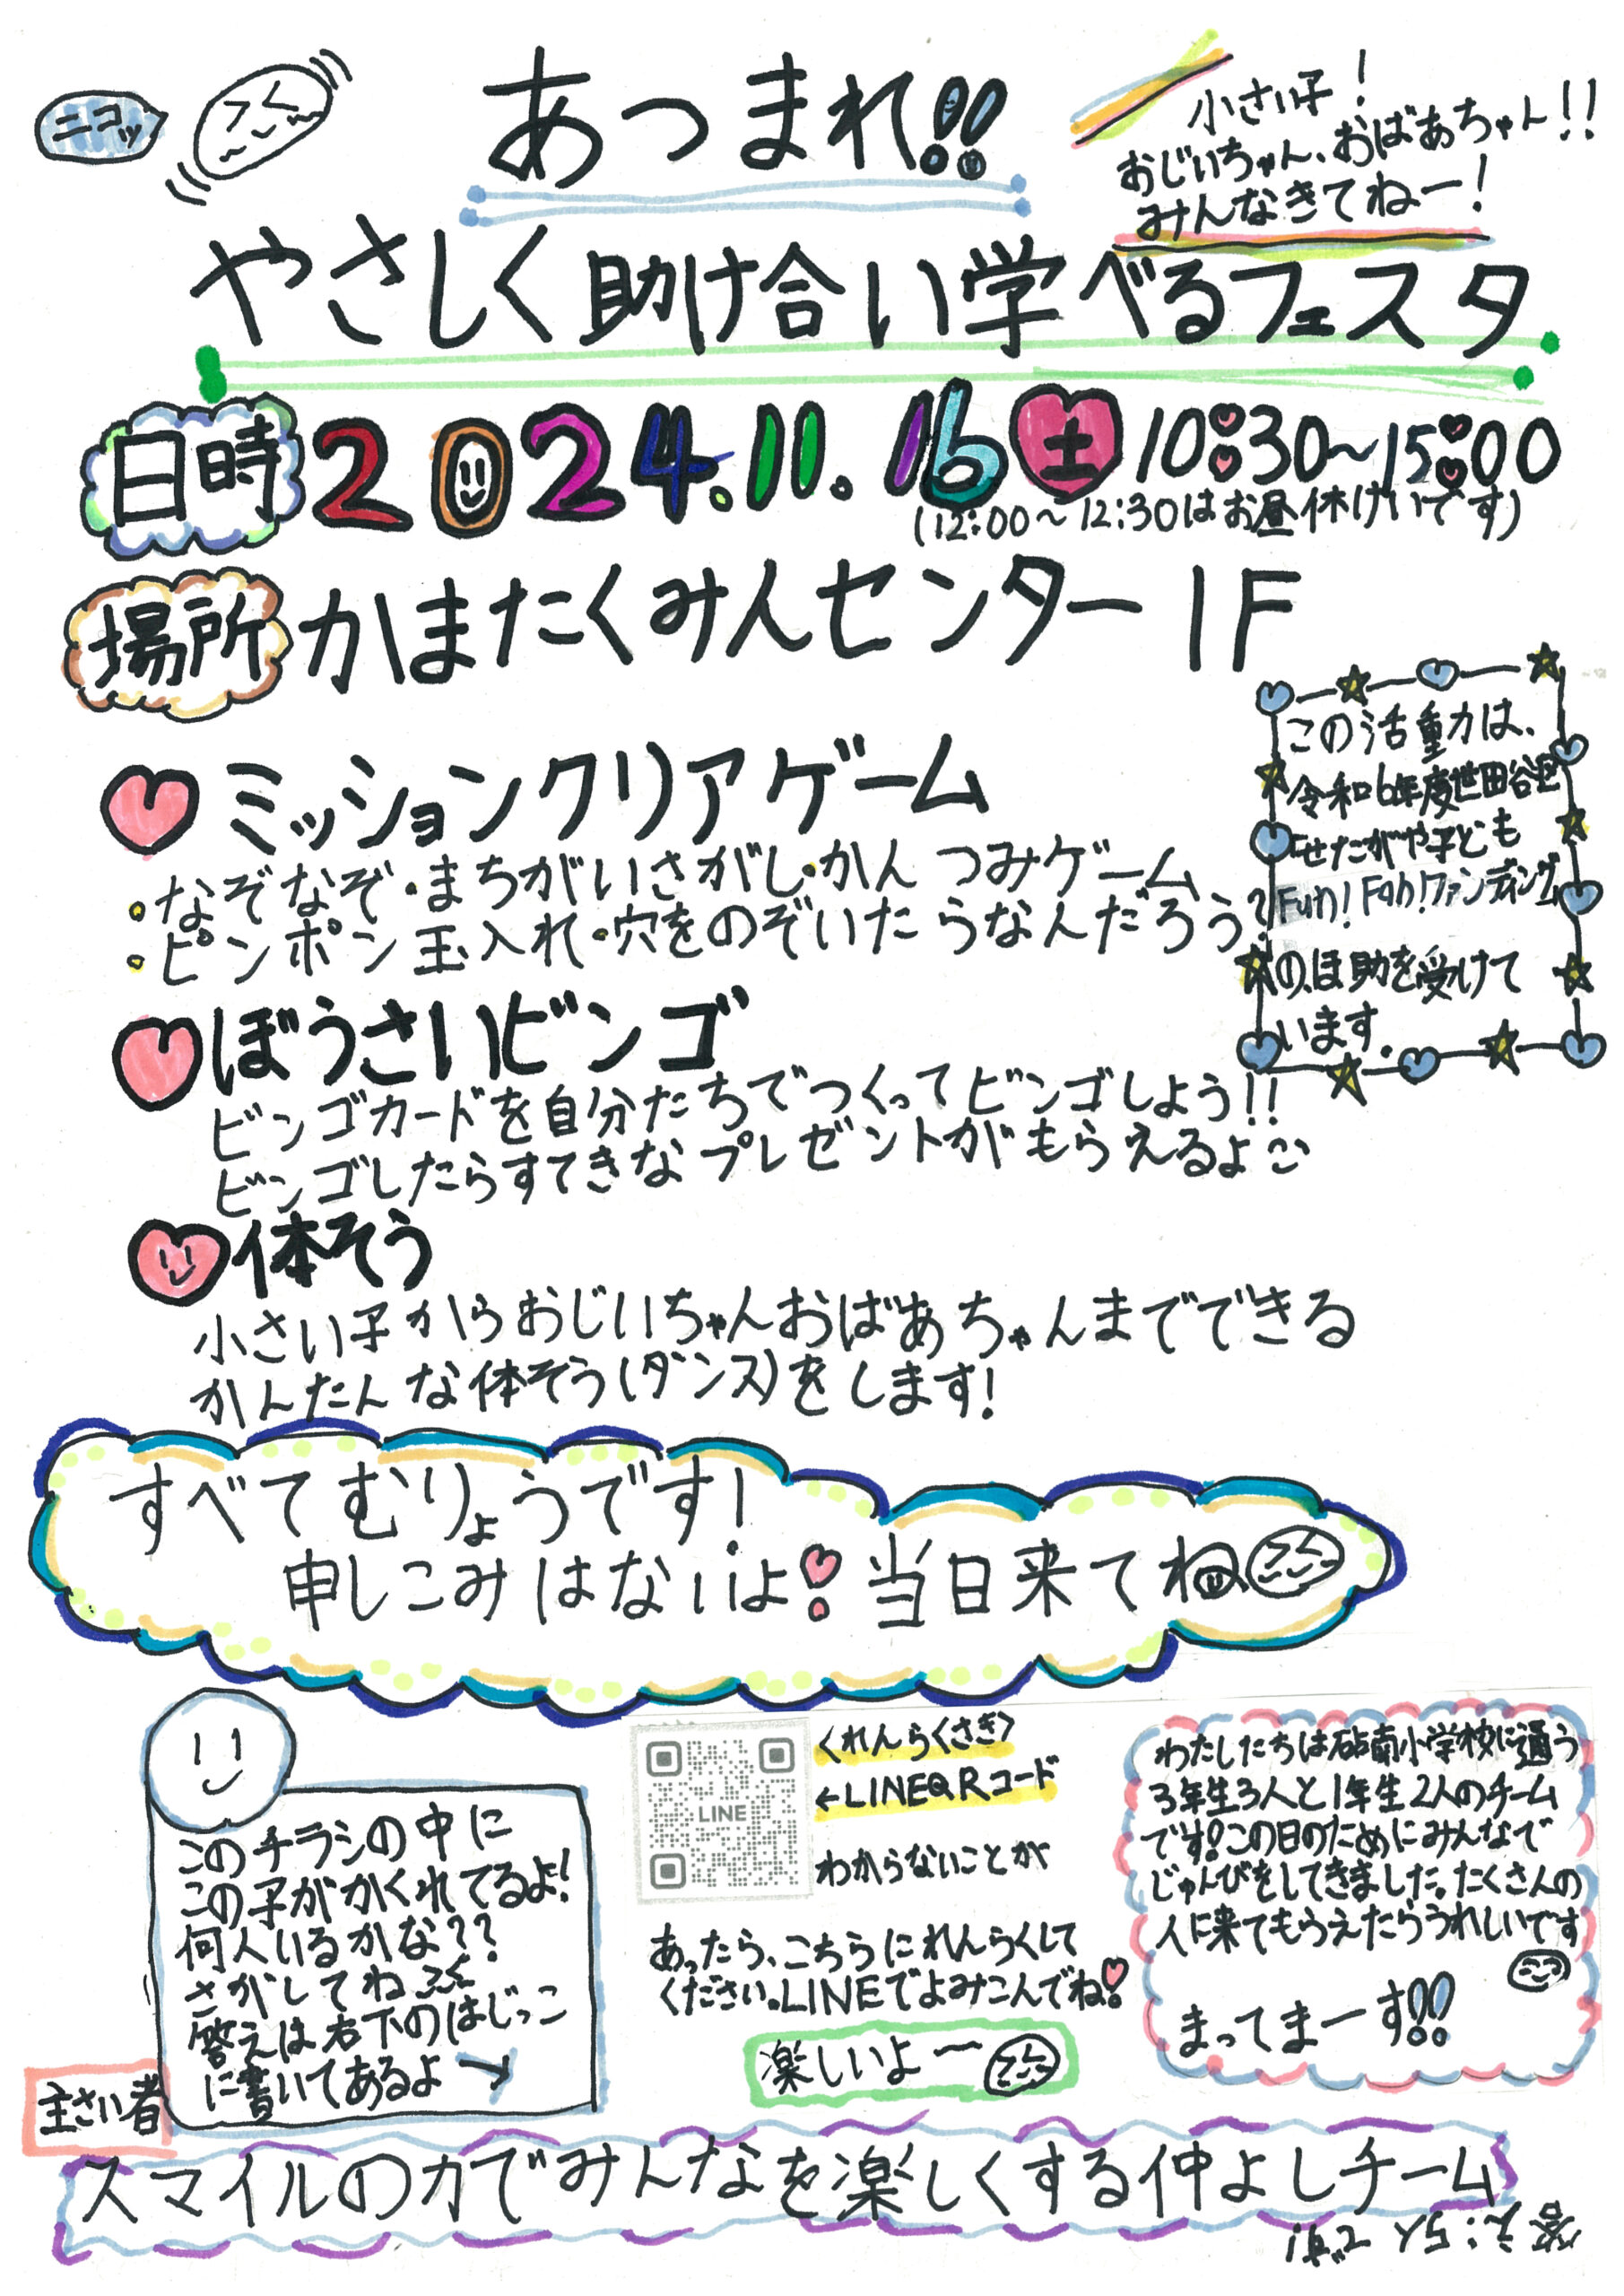 ニコッ
あつまれ!!
小さい子!
おじいちゃん、おばあちゃん!!
みんなきてねー!
やさしく助け合い学べるフェスタ
日時 2024.11.16 土 10:30~15:00
(12:00~12:30はお昼休けいです)
場所 かまたくみんセンター 1F
この活動は、
令和6年度世田谷区
「せたがや子ども
Fun! Fan!ファンディング」
のほ助を受けて
います。
ミッションクリアゲーム
・なぞなぞ・まちがいさがし・かんつみゲーム
・ピンポン玉入れ・穴をのぞいたらなんだろう?
ぼうさいビンゴ
ビンゴカードを自分たちでつくってビンゴしよう!!
ビンゴしたらすてきなプレゼントがもらえるよ
体そう
小さい子からおじいちゃんおばあちゃんまでできる
かんたんな体そう(ダンス)をします!
すべてむりょうです!
申しこみはないよ! 当日来てね
このチラシの中に
この子がかくれてるよ!
何人いるかな??
さがしてね
答えは右下のはじっこ
に書いてあるよ→
LINE
<れんらくさき>
←LINEQRコード
わからないことが
あったら、こちらにれんらくして
ください。LINEでよみこんでね!
楽しいよー
わたしたちは砧南小学校に通う
3年生3人と1年生2人のチーム
です!この日のためにみんなで
じゅんびをしてきました。たくさんの
人に来てもらえたらうれしいです
まってまーす!!
主さい者
スマイルの力でみんなを楽しくする仲よしチーム
答え:5人です!